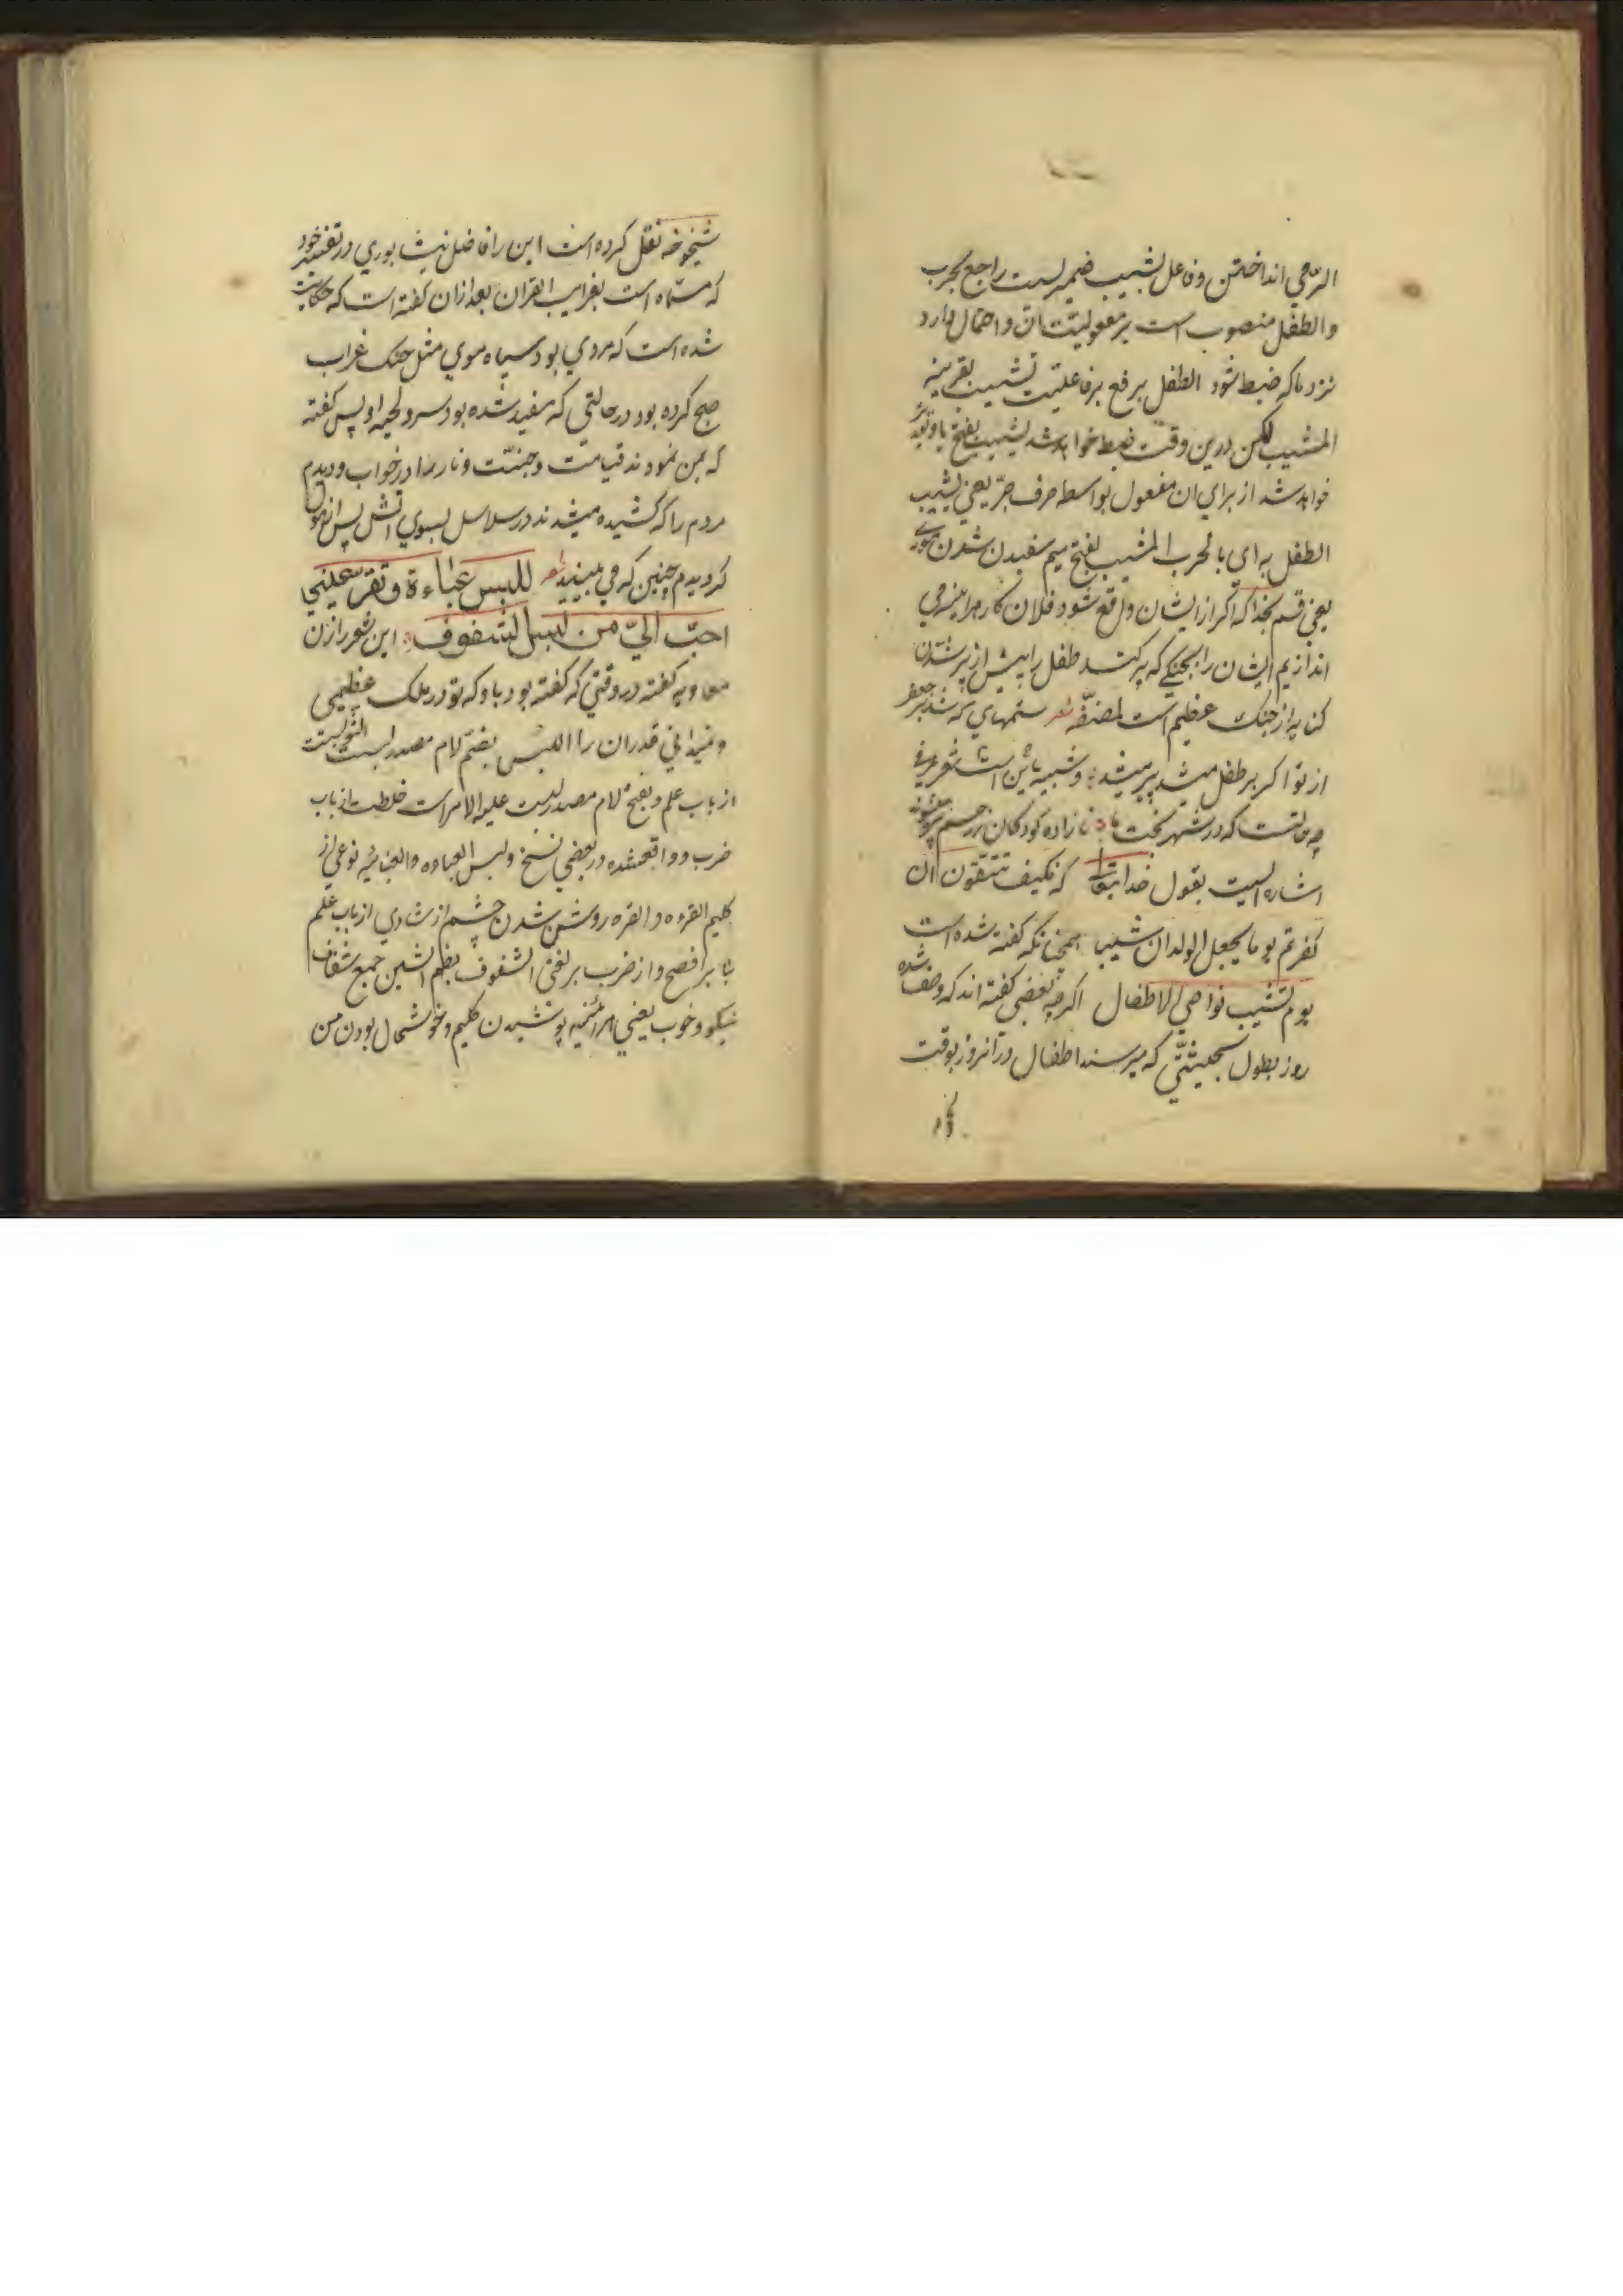 الرّمي انداختن و فاعل يشيب ضميريست راجع بحرب
والطفل منصوب است بر مفعوليّت ان و احتمال دارد
نزد ما كه ضبط شود الطفل برفع بر فاعليت تشيب بقرينه
المشيب لكن درين وقت ضبط خواهد شد يشيب بفتح يا و
خواهد شد از براي ان مفعول بواسطه حرف جرّ يعني يشيب
الطفل به اى بالحرب المشيب بفتح ميم سفيدن شدن موى
يعني قسم بخدا كه اكر از ايشان واقع شود فلان كار هراينه مي
اندازيم ايشان را بجنكى كه پير كند طفل را پيش از پير شدن
كنايه از جنك عظيم است لمصنّفه شعر ستمهاي كه شد بر جعفر
از تو اكر بر طفل ميشد پير ميشد و شبيه باين است شعر عرفى
چه حالتست كه در شهر بخت ما نازاده كودكان
اشاره ايست بقول خدا تعالى كه فكيف تتقون ان
كفرتم يوما يجعل الولدان شيبا همچنانكه كفته شده است
يوم تشيب نواصي الاطفال اكرچه بعضي كفته اند كه وصف شده
روز بطول بحيثيّتي كه ميرسند اطفال در آنروز بوقت
شيخوخه نقل كرده است اين را فاضل نيشابوري در تفسير خود
كه مسماه است بغرايب القران بعد ازان كفته است كه حكايت
شده است كه مردي بود سياه موي مثل حنك غراب
صبح كرده بود در حالتي كه سفيد شده بود سر و لحيه او پس كفته
كه بمن نمودند قيامت و جنّت و نار را در خواب و ديدم
مردم را كه كشيده ميشدند در سلاسل بسوي اتش پس از هول
كرديدم چنين كه مي بينيد شعر للبس عباءة و تقرّ عيني
احبّ اليّ من لبس الشفوف اين شعر را زن
معاويه كفته در وقتي كه كفته بود باو كه تو در ملك عظيمى
و نميداني قدر ان را اللبس بضمّ لام مصدر لبست الثوب است
از باب علم و بفتح لام مصدر لبست عليه الامر است خلطت از باب
ضرب و واقعشده در بعضي نسخ و لبس العباءه والعبائيه نوعي از
كليم القره و القره روشن شدن چشم از شادي از باب علم
بنابر افصح و از ضرب بر لغتى الشفوف بضم الشين جمع شفاف
نيكو و خوب يعني هرائنيه پوشيدن كليم و خوشحال بودن من